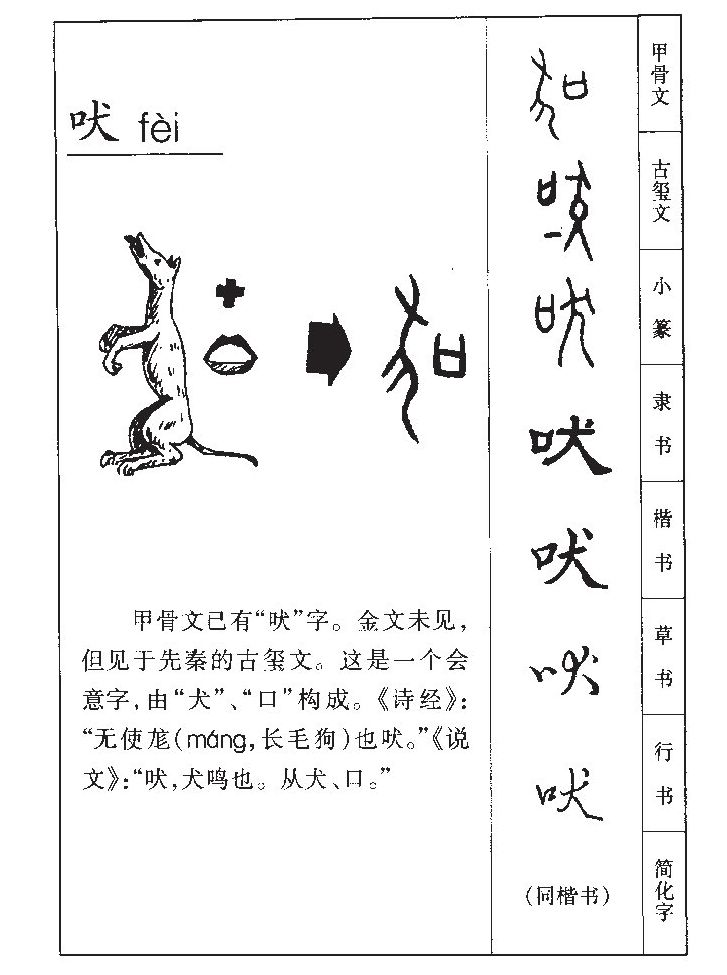 吠 fèi
甲骨文已有“吠”字。金文未见，
但见于先秦的古玺文。这是一个会
意字，由“犬”、“口”构成。《诗经》：
“无使尨(máng,长毛狗)也吠。”《说
文》：“吠，犬鸣也。从犬、口。”
吠 甲骨文
吠 古玺文
吠 小篆
吠 隶书
吠 楷书
吠 草书
吠 行书
(同楷书) 简化字